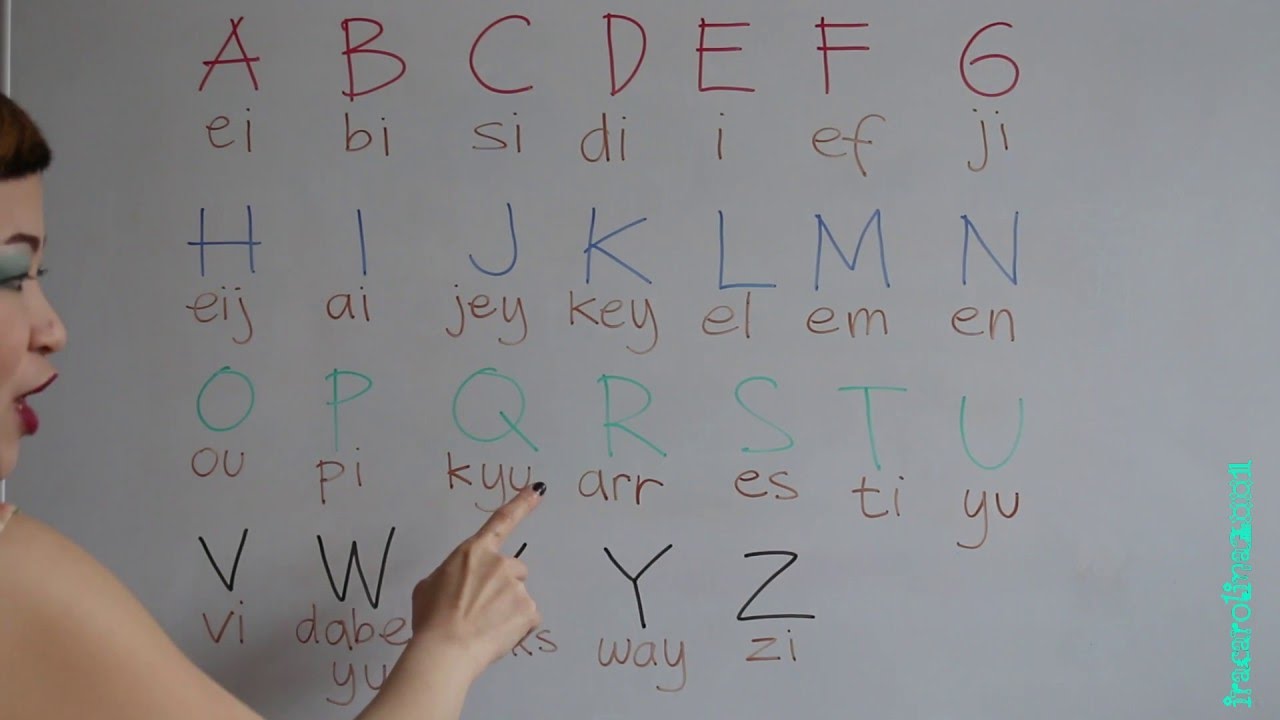 A B C D E F G
ei bi si di i ef ji
H I J K L M N
eij ai jey key el em en
O P Q R S T U
ou pi kyu arr es ti yu
V W Y Z
vi dabe way zi
yu
iracarolina2mil1